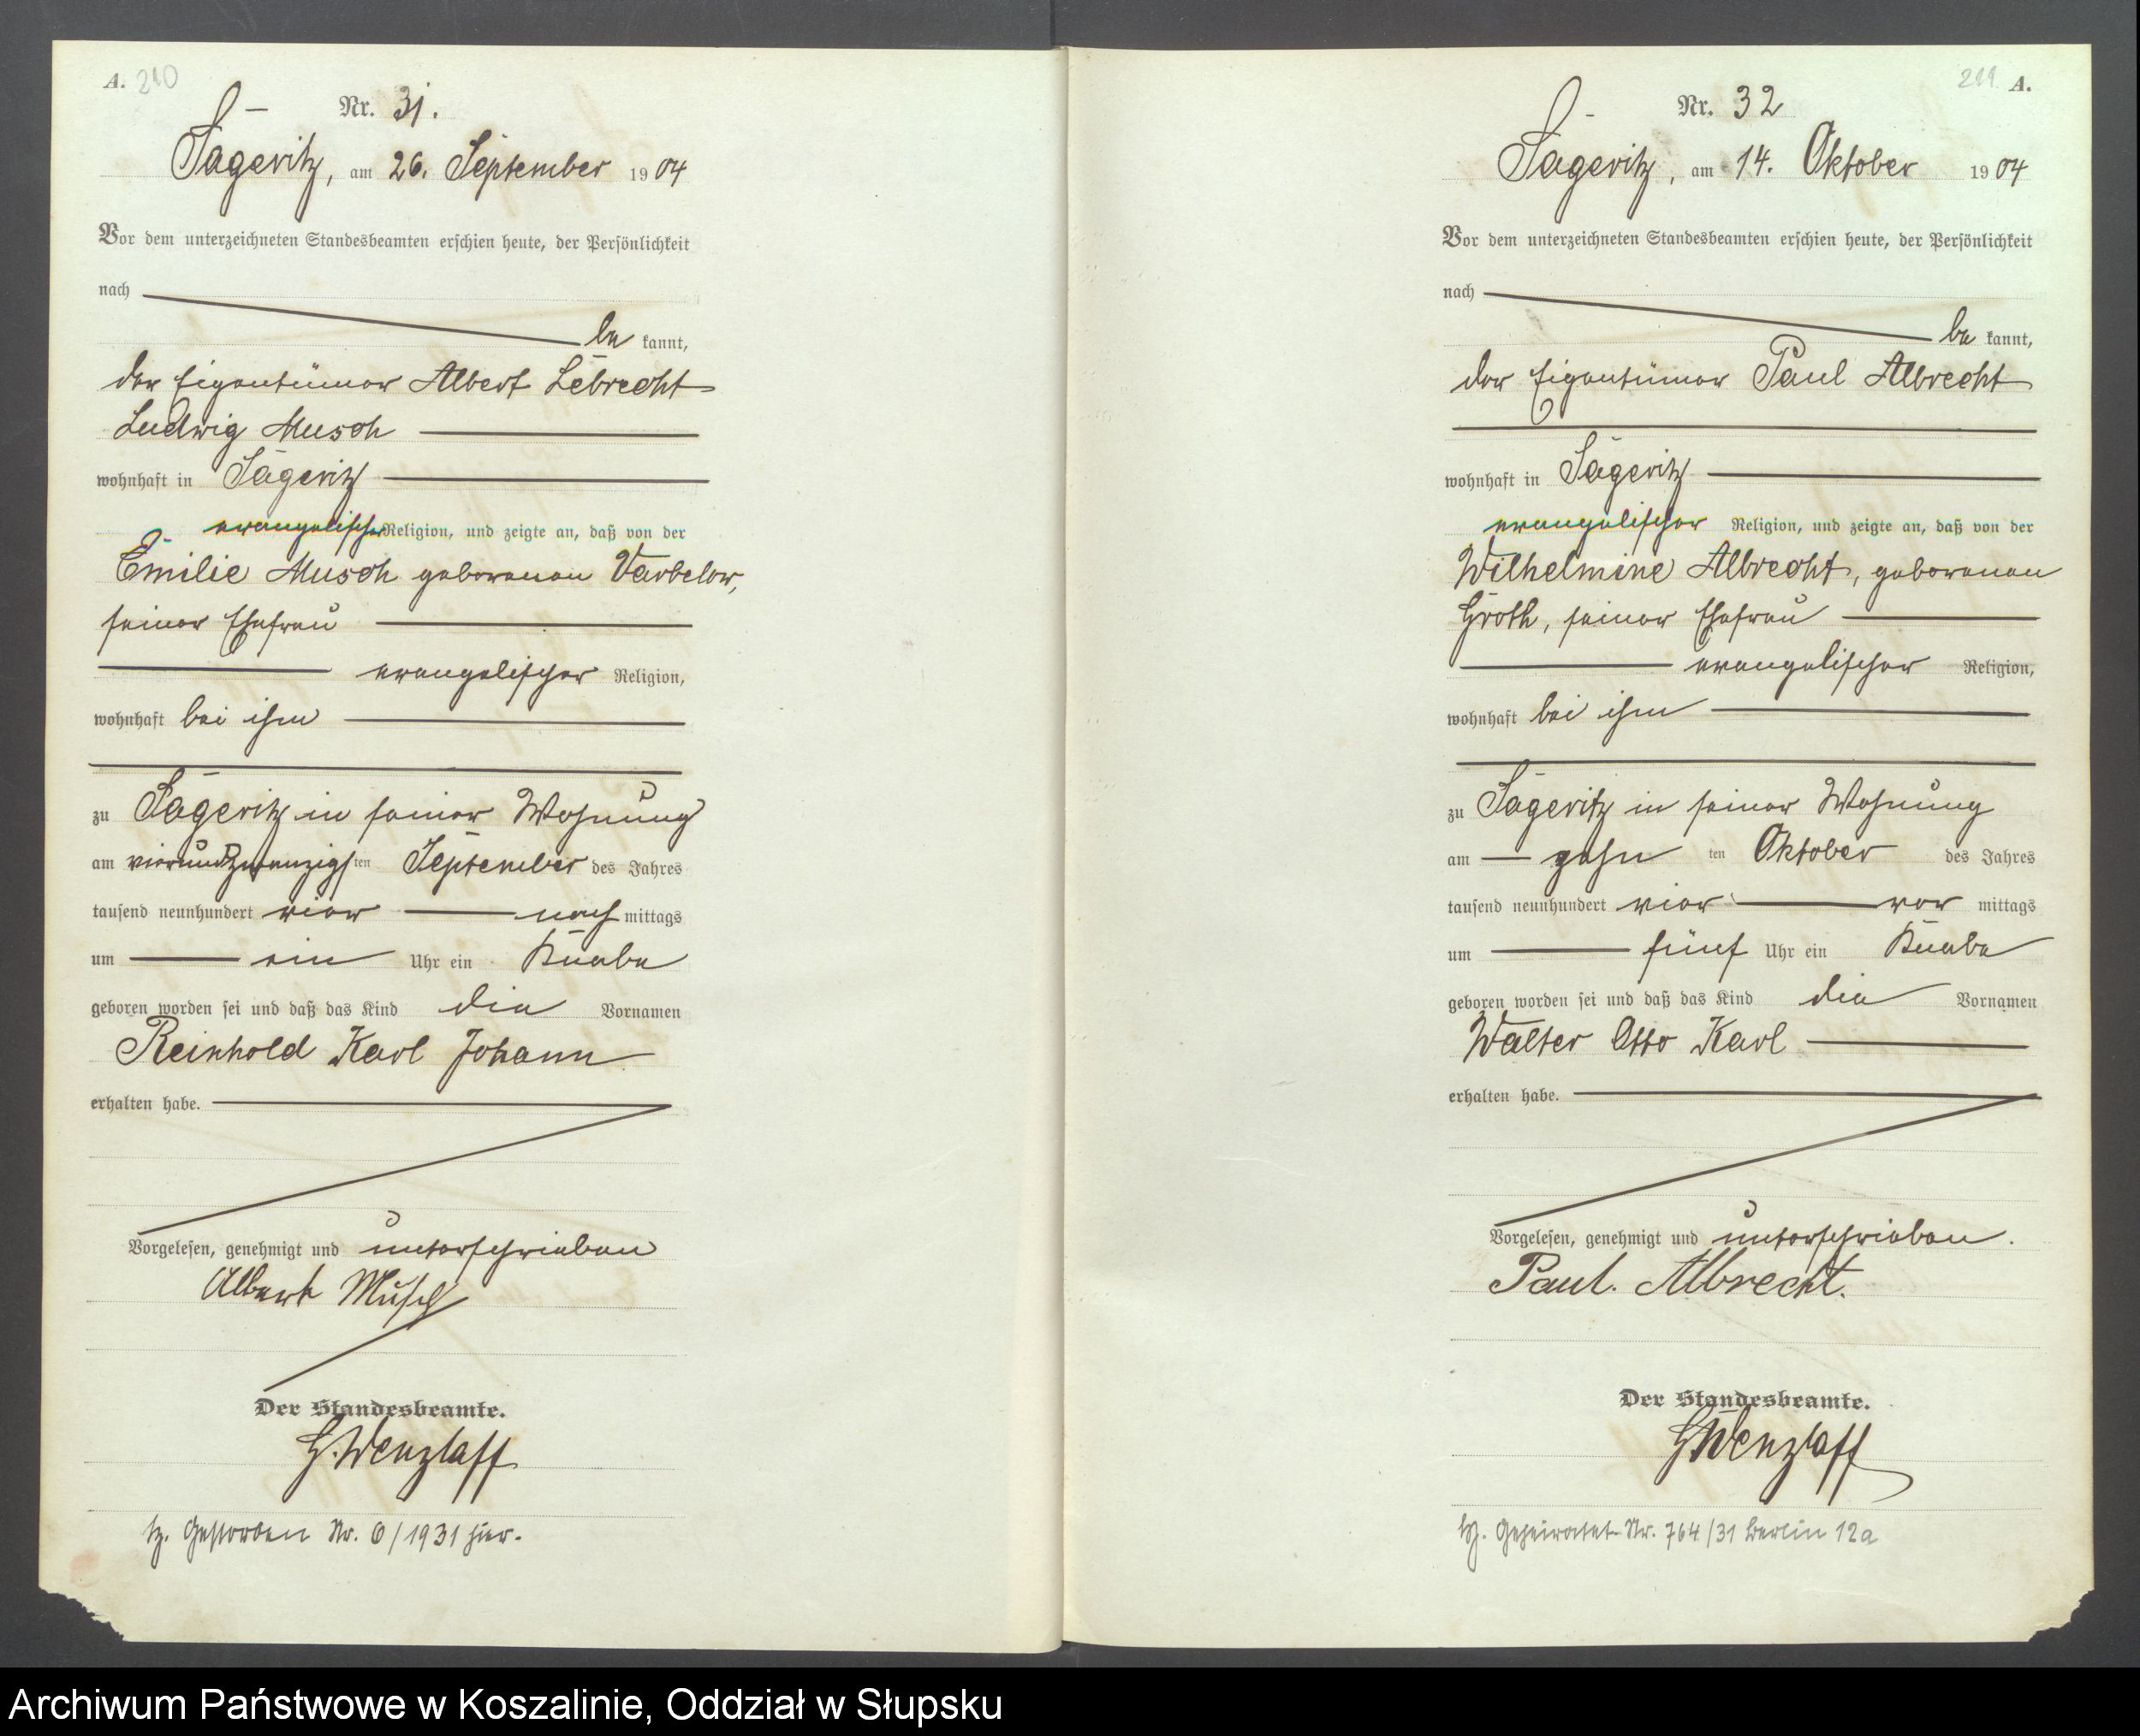 A. 210
Nr. 31.
Sageritz, am 26. September 1904
Vor dem unterzeichneten Standesbeamten erschien heute, der Persönlichkeit
nach
be kannt,
der Eigentümer Albert Lebrecht
Ludwig Musch
wohnhaft in Sageritz
evangelischer Religion, und zeigte an, daß von der
Emilie Musch geborenen Varbelow,
seiner Ehefrau
evangelischer Religion,
wohnhaft bei ihm
zu Sageritz in seiner Wohnung
am vierundzwanzigsten September des Jahres
tausend neunhundert vier nach mittags
um ein Uhr ein Knabe
geboren worden sei und daß das Kind die Vornamen
Reinhold Karl Johann
erhalten habe.
Vorgelesen, genehmigt und unterschrieben
Albert Musch
Der Standesbeamte.
G. Wenzlaff
Gestorben Nr. 6/1931 hier.
211 A.
Nr. 32
Sageritz, am 14. Oktober 1904
Vor dem unterzeichneten Standesbeamten erschien heute, der Persönlichkeit
nach
be kannt,
der Eigentümer Paul Albrecht
wohnhaft in Sageritz
evangelischer Religion, und zeigte an, daß von der
Wilhelmine Albrecht, geborenen
Groth, seiner Ehefrau
evangelischer Religion,
wohnhaft bei ihm
zu Sageritz in seiner Wohnung
am zehn ten Oktober des Jahres
tausend neunhundert vier vor mittags
um fünf Uhr ein Knabe
geboren worden sei und daß das Kind die Vornamen
Walter Otto Karl
erhalten habe.
Vorgelesen, genehmigt und unterschrieben.
Paul. Albrecht.
Der Standesbeamte.
G Wenzlaff
Geheiratet Nr. 764/31 Berlin 12a
Archiwum Państwowe w Koszalinie, Oddział w Słupsku